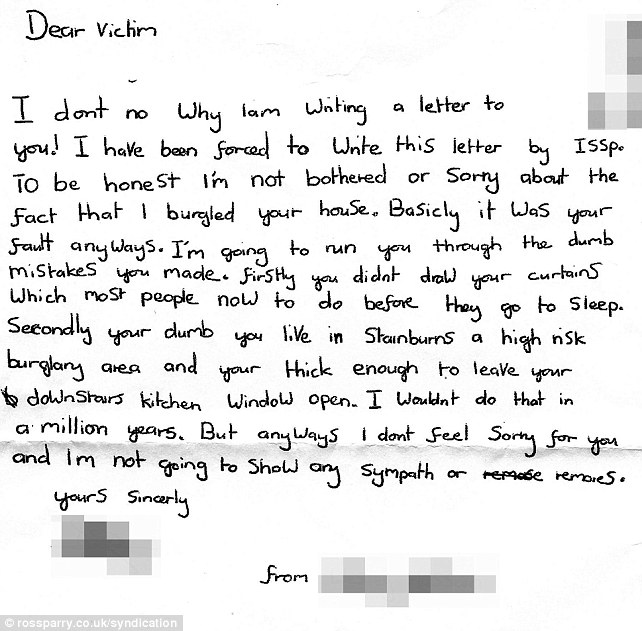 Dear Victim
I dont no Why Iam Writing a letter to
you! I have been forced to Write this letter by ISSp.
To be honest I'm not bothered or Sorry about the
fact that I burgled your house. Basicly it Was your
fault anyways. I'm going to run you through the dumb
mistakes you made. firstly you didnt draw your curtains
Which most people now to do before they go to sleep.
Secondly your dumb you live in Stainburns a high risk
burglary area and your thick enough to leave your
downstairs kitchen Window open. I Wouldnt do that in
a million years. But anyWays I dont feel Sorry for you
and Im not going to Show any Sympath or remose remores.
yours Sincerly
from
© rossparry.co.uk/syndication